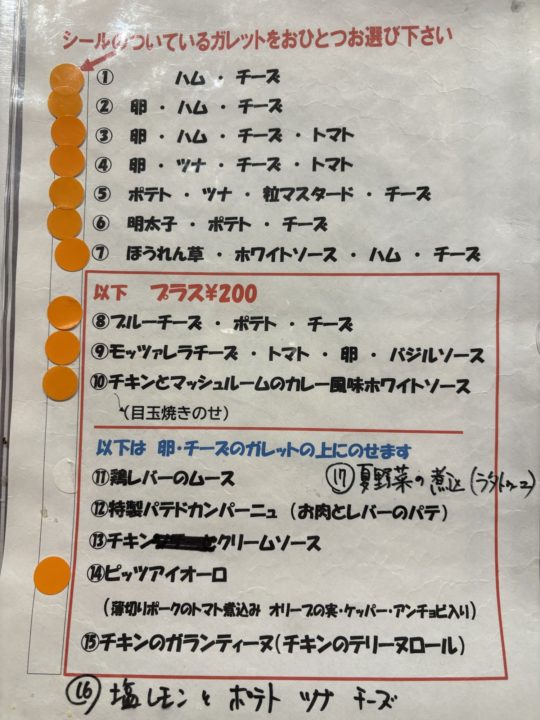 シールのついているガレットをおひとつお選び下さい
① ハム ・ チーズ
② 卵 ・ ハム ・ チーズ
③ 卵 ・ ハム ・ チーズ ・ トマト
④ 卵 ・ ツナ ・ チーズ ・ トマト
⑤ ポテト ・ ツナ ・ 粒マスタード ・ チーズ
⑥ 明太子 ・ ポテト ・ チーズ
⑦ ほうれん草 ・ ホワイトソース ・ ハム ・ チーズ
以下 プラス¥200
⑧ブルーチーズ ・ ポテト ・ チーズ
⑨モッツァレラチーズ ・ トマト ・ 卵 ・ バジルソース
⑩チキンとマッシュルームのカレー風味ホワイトソース
(目玉焼きのせ)
以下は 卵・チーズのガレットの上にのせます
⑪鶏レバーのムース
⑰夏野菜の煮込(ラタトゥーユ)
⑫特製パテドカンパーニュ (お肉とレバーのパテ)
⑬チキン クリームソース
⑭ピッツアイオーロ
(薄切りポークのトマト煮込み オリーブの実・ケッパー・アンチョビ入り)
⑮チキンのガランティーヌ(チキンのテリーヌロール)
⑯ 塩レモンと ポテト ツナ チーズ